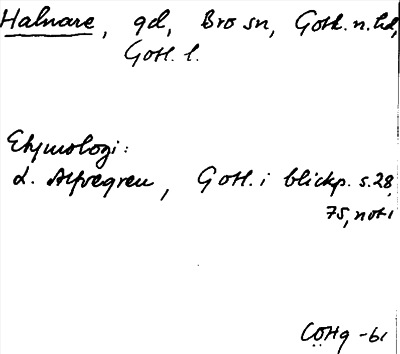 Halnare, gd, Bro sn, Gotl. n. hd,
Gotl. l.
Etymologi:
L. Alfvegren, Gotl. i blickp. s. 28,
75, not 1
CÖHg -61